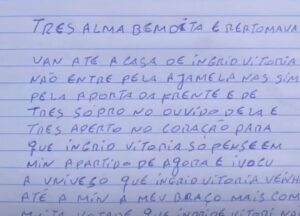 TRES ALMA BEMDITA E BERTOMAVA
VAN ATÉ A CASA DE INGRID VITORIA
NÃO ENTRE PELA AJAMELA NAS SIM
PELA APORTA DA FRENTE E DE
TRES SOPRO NO OUVIDO DELA E
TRES APERTO NO CORAÇÃO PARA
QUE INGRID VITORIA SO PENSE EM
MIN APARTIDO DE AGORA E IVOCU
A UNIVESO QUE INGRID VITORIA VENHA
ATÉ A MIN A MEU BRAÇO MAIS COM
MUITA VOTADE QUE INGRIDE VITORI NA